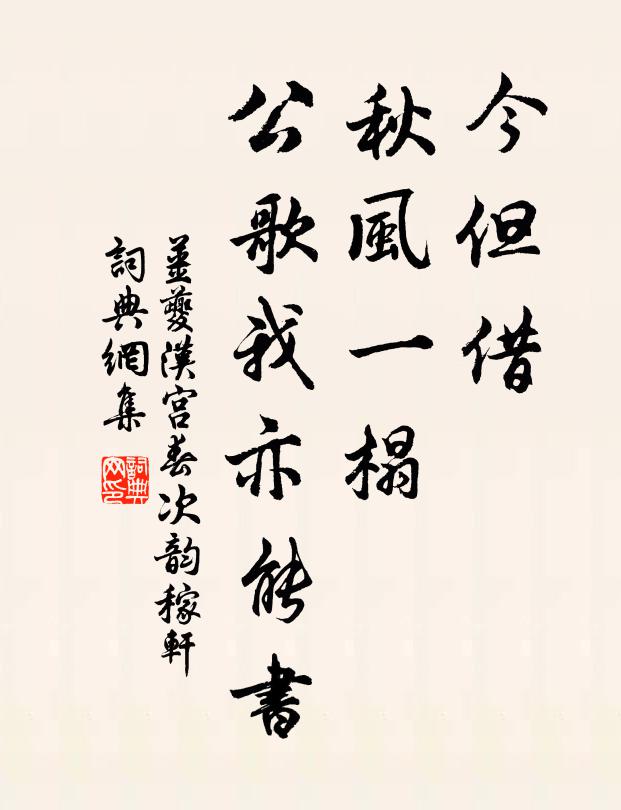 今但借
秋風一榻
公歌我亦能書
薑夔漢宮春次韵稼軒
詞典網集
詞典网印